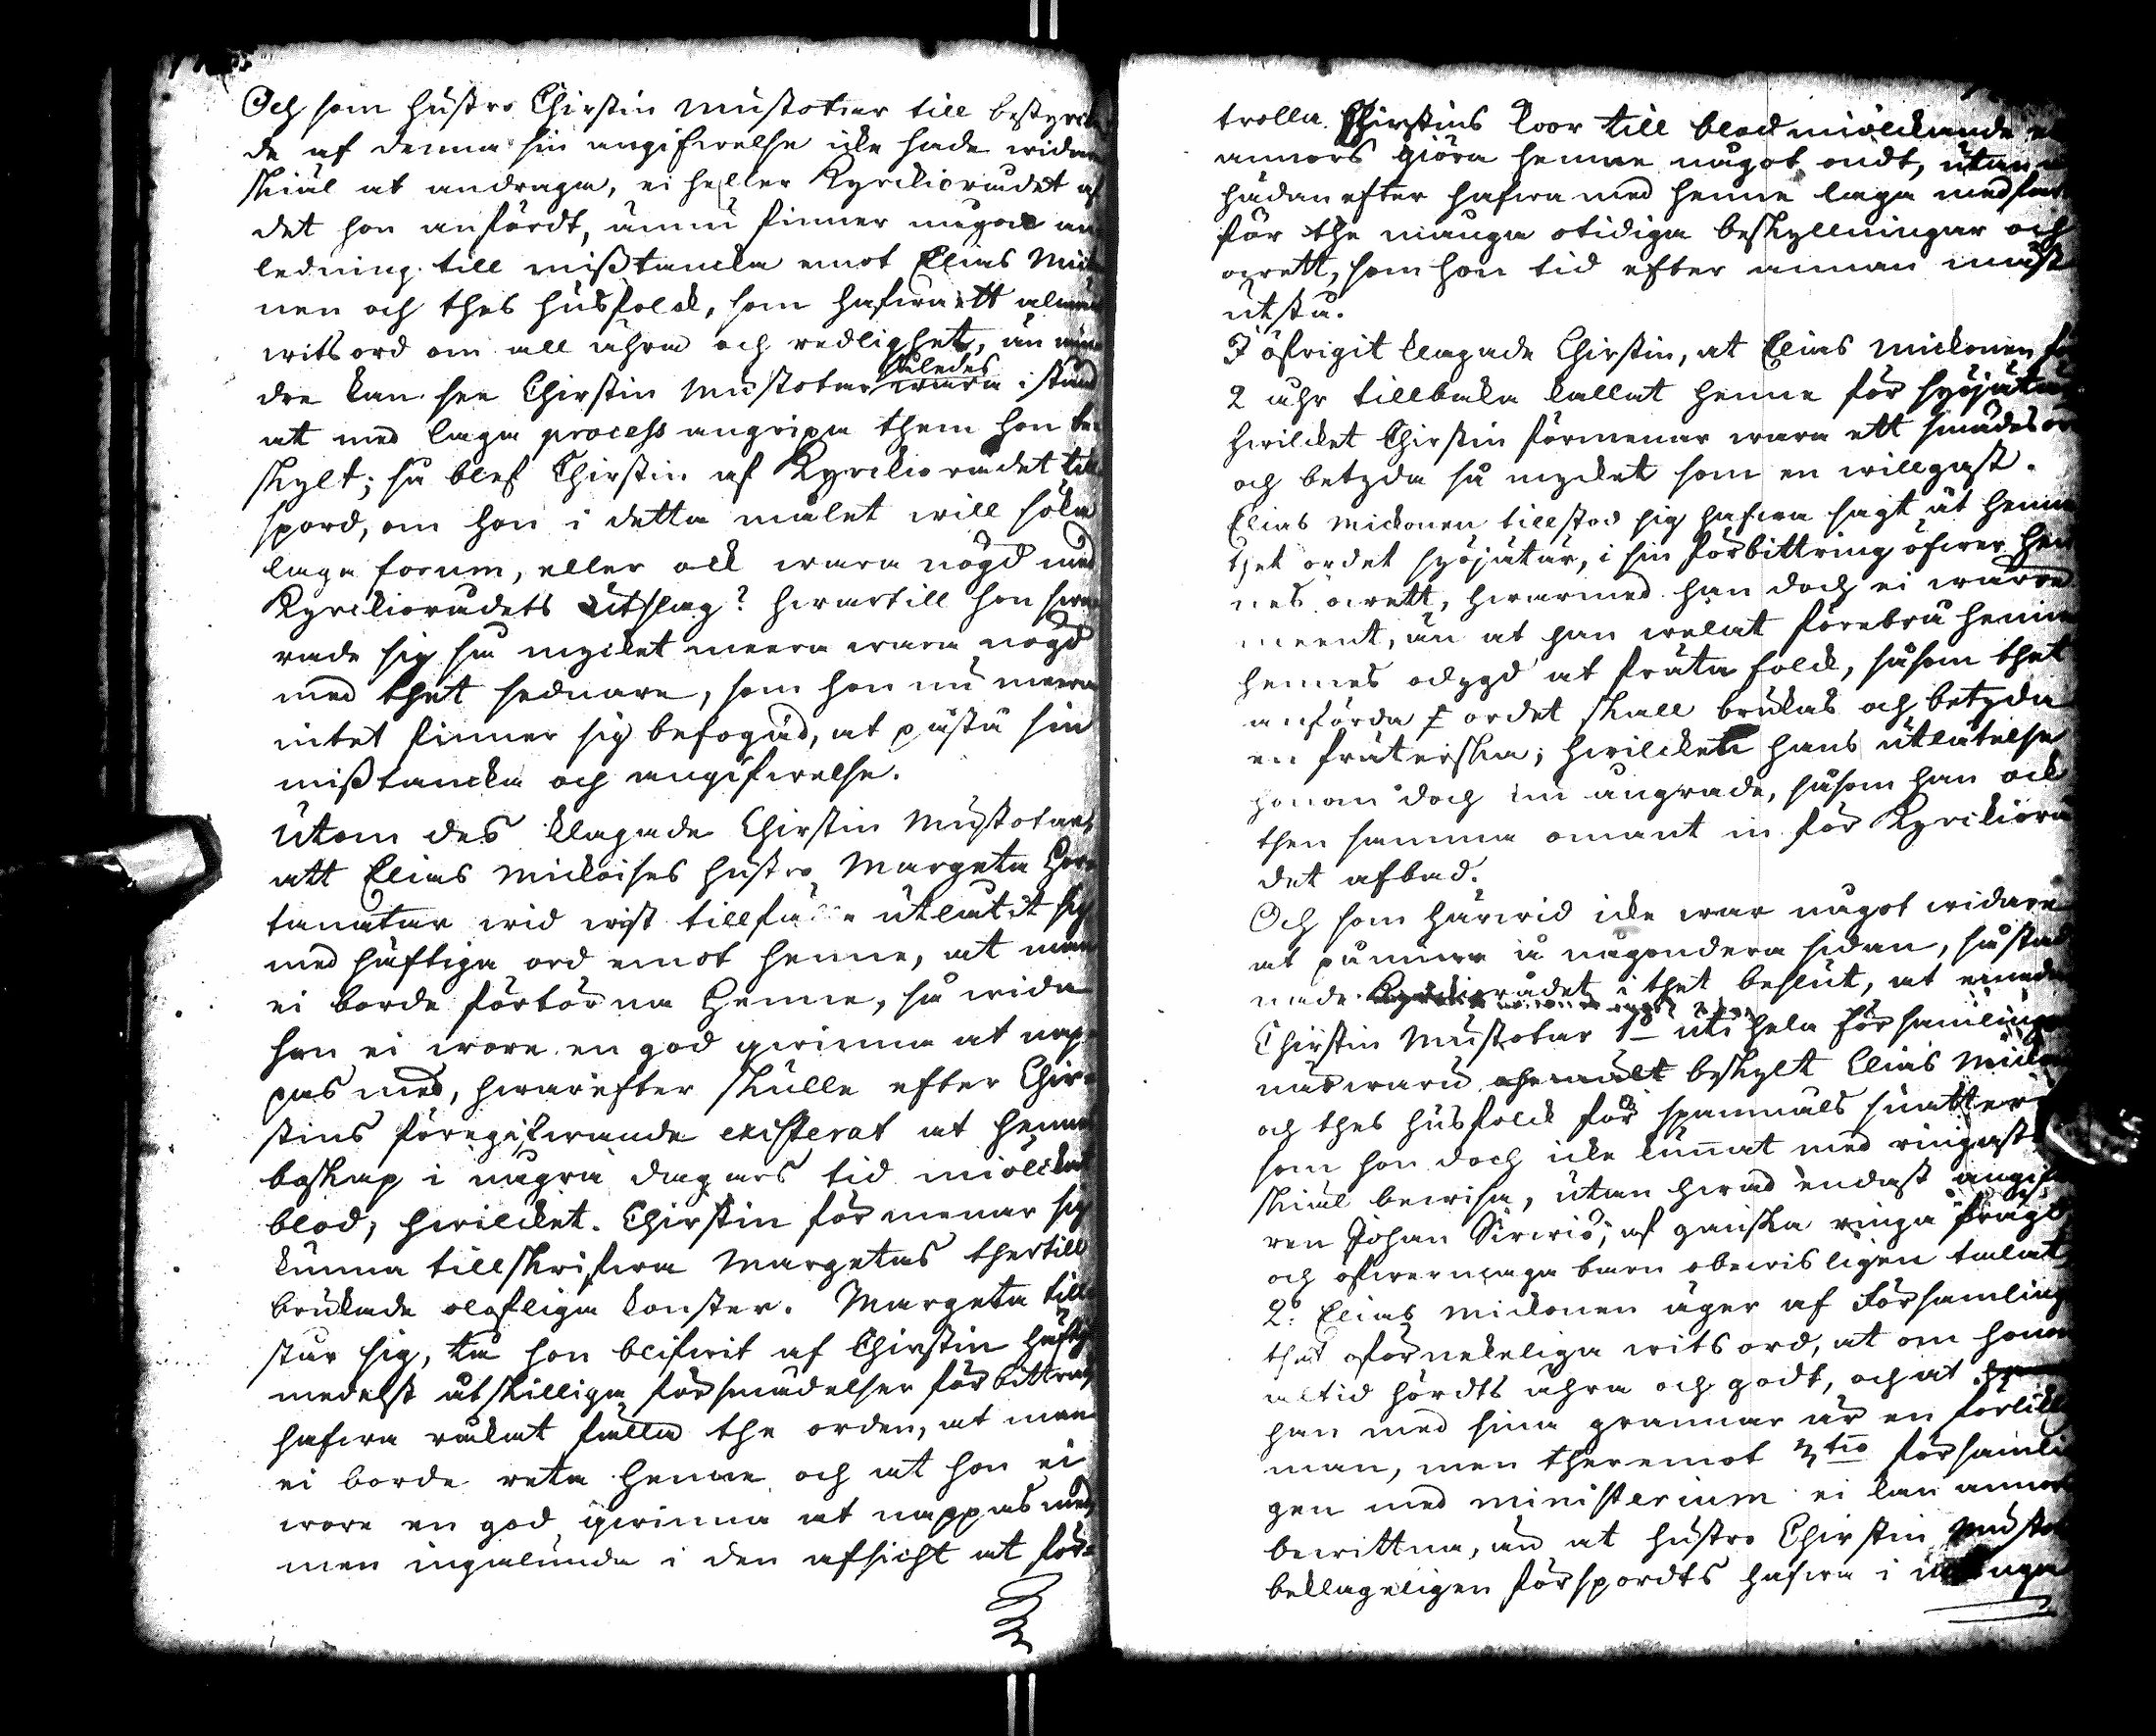 Och som hustro Chirstin Mustotar till bestyrck
de af denna sin angifwelse icke hade widare
skiäl at andraga, ei heller Kyrckiorådet af
det hon anfördt, ännu finner någon an
ledning till misstancka emot Elias Mick
nen och thes husfolck, som hafwa ett almänt
witsord om all ährea och redlighet, än min
dre kan see Chirstin Mustotar således wara i stånd
att med laga process angripa them hon be
skylt; så blef Chirstin af Kyrckiorådet till
spord, om hon i detta målet will söka
laga forum, eller ock wara nögd med
Kyrckiorådets utslag? hwartill hon swa
rade sig så mycket meera wara nögd
med thet sednare, som hon nu meera
intet finner sig befogad, at påstå sin
misstancka och angifwelse.
Utom des klagade Chirstin Mustotar,
att Elias Mickoises hustro Margeta Her
tanatar wid wist tillfälle utlåtit sig
med häftiga ord emot henne, at man
ei borde förtörna henne, så wida
hon ei wore en god qwinna at nap
pas med, hwarefter skulle efter Chir
stins föregifwande existerat at hennes
boskap i några dagars tid miölckat
blod; hwilcket Chirstin förmenar sig
kunna tillskrifwa Margetas thertill
brukade olofliga konster. Margeta till
står sig, tå hon blifwit af Chirstin häftigt
medelst åtskilliga försmädelser förbittrad
hafwa råkat fälla the orden, at man
ei borde reta henne och at hon ei
wore en god qwinna at nappas med,
men ingalunda i den afsicht at för-
trolla Chirstins koor till blod miölckande el
annors giöra henne något ondt, utan
hädanefter hafwa med henne laga medfart
för the många otidiga beskyllningar och
owett, som hon tid efter annan måst
utstå.
I öfrigit klagade Chirstin, at Elias Mickonen för
2 åhr tillbaka kallat henne för syöjätär
hwilcket Chirstin förmenar wara ett smädesord
och betyda så mycket som en willgast.
Elias Mickonen tillstod sig hafwa sagt åt henne
thet ordet syöjätär, i sin förbittring öfwer hen
nes owett, hwarmed han doch ei wärre
meent, än at han welat förebrå henne
hennes odygd at fräta folck, såsom thet
anförda ordet skall brukas och betyda
en fräterska; hwilcket hans utlåtelse
honom doch nu ångrade, såsom han ock
then samma omant in för Kyrckiorå
det afbad.
Och som härwid icke war något widare
at påminna å någondera sidan, så stad
nade Kyrckiorådet i thet beslut, at emedan
Chirstin Mustotar 1o uti hela församlingens
närwaru beskylt Elias Micko
och thes husfolck för spannmåls snatteri
som hon doch icke kunnat med ringaste
skiäl bewisa, utan hwad endast angifwa
ren Johan Sirwiö, af ganska ringa frägd
och öfwermaga barn obewisligen talat
2o. Elias Mickonen äger af Församling
thet oförnekeliga witsord, at om honom
altid hördts ährea och godt, och at
han med sina grannar är en förlikt
man, men theremot 3tio församlin
gen med ministerium ei kan annors
bewittna, än at hustro Chirstin Mustot
beklageligen förspordts hafwa i många